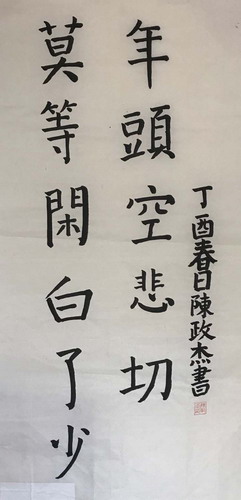 莫等閑白了少
年頭空悲切
丁酉春日陳政杰書